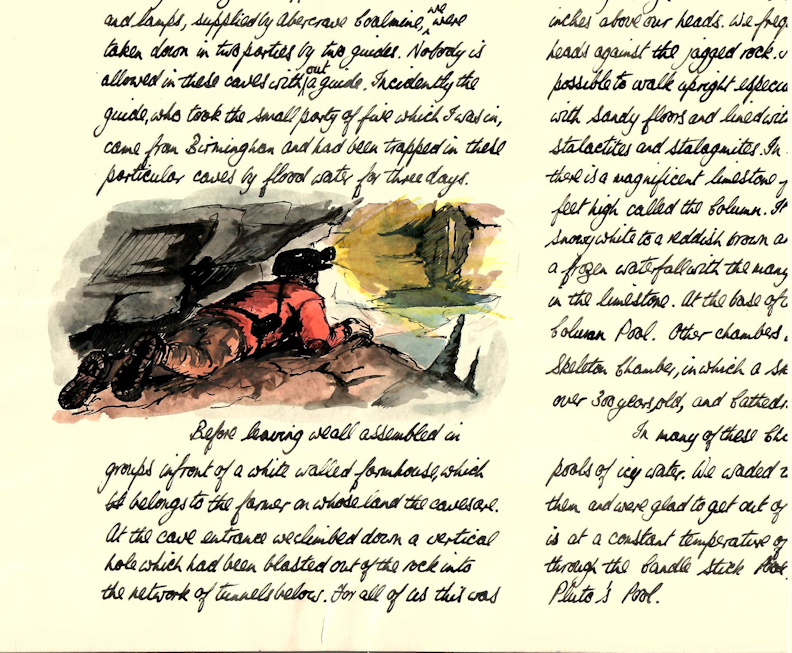 and lamps, supplied by Abercrave Coalmine, we were
taken down in two parties by two guides. Nobody is
allowed in these caves without a guide. Incidently the
guide, who took the small party of five which I was in,
came from Birmingham and had been trapped in these
particular caves by flood water for three days.
Before leaving we all assembled in
groups infront of a white walled farmhouse, which
belongs to the farmer on whose land the caves are.
At the cave entrance we climbed down a vertical
hole which had been blasted out of the rock into
the network of tunnels below. For all of us this was
inches above our heads. We freq
heads against the jagged rock.
possible to walk upright especia
with sandy floors and lined wit
stalactites and stalagmites. In
there is a magnificent limestone
feet high called the Column. It
snowy white to a reddish brown an
a frozen waterfall with the many
in the limestone. At the base of
Column Pool. Other chambers
Skeleton Chamber, in which a sk
over 300 years old, and Cathedr
In many of these Cha
pools of icy water. We waded
them and were glad to get out of
is at a constant temperature of
through the Candle stick Pool.
Pluto's Pool.